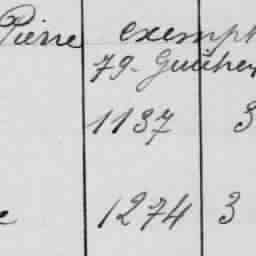 Pierre exempt
79. Guithen
1137 3
e 1274 3